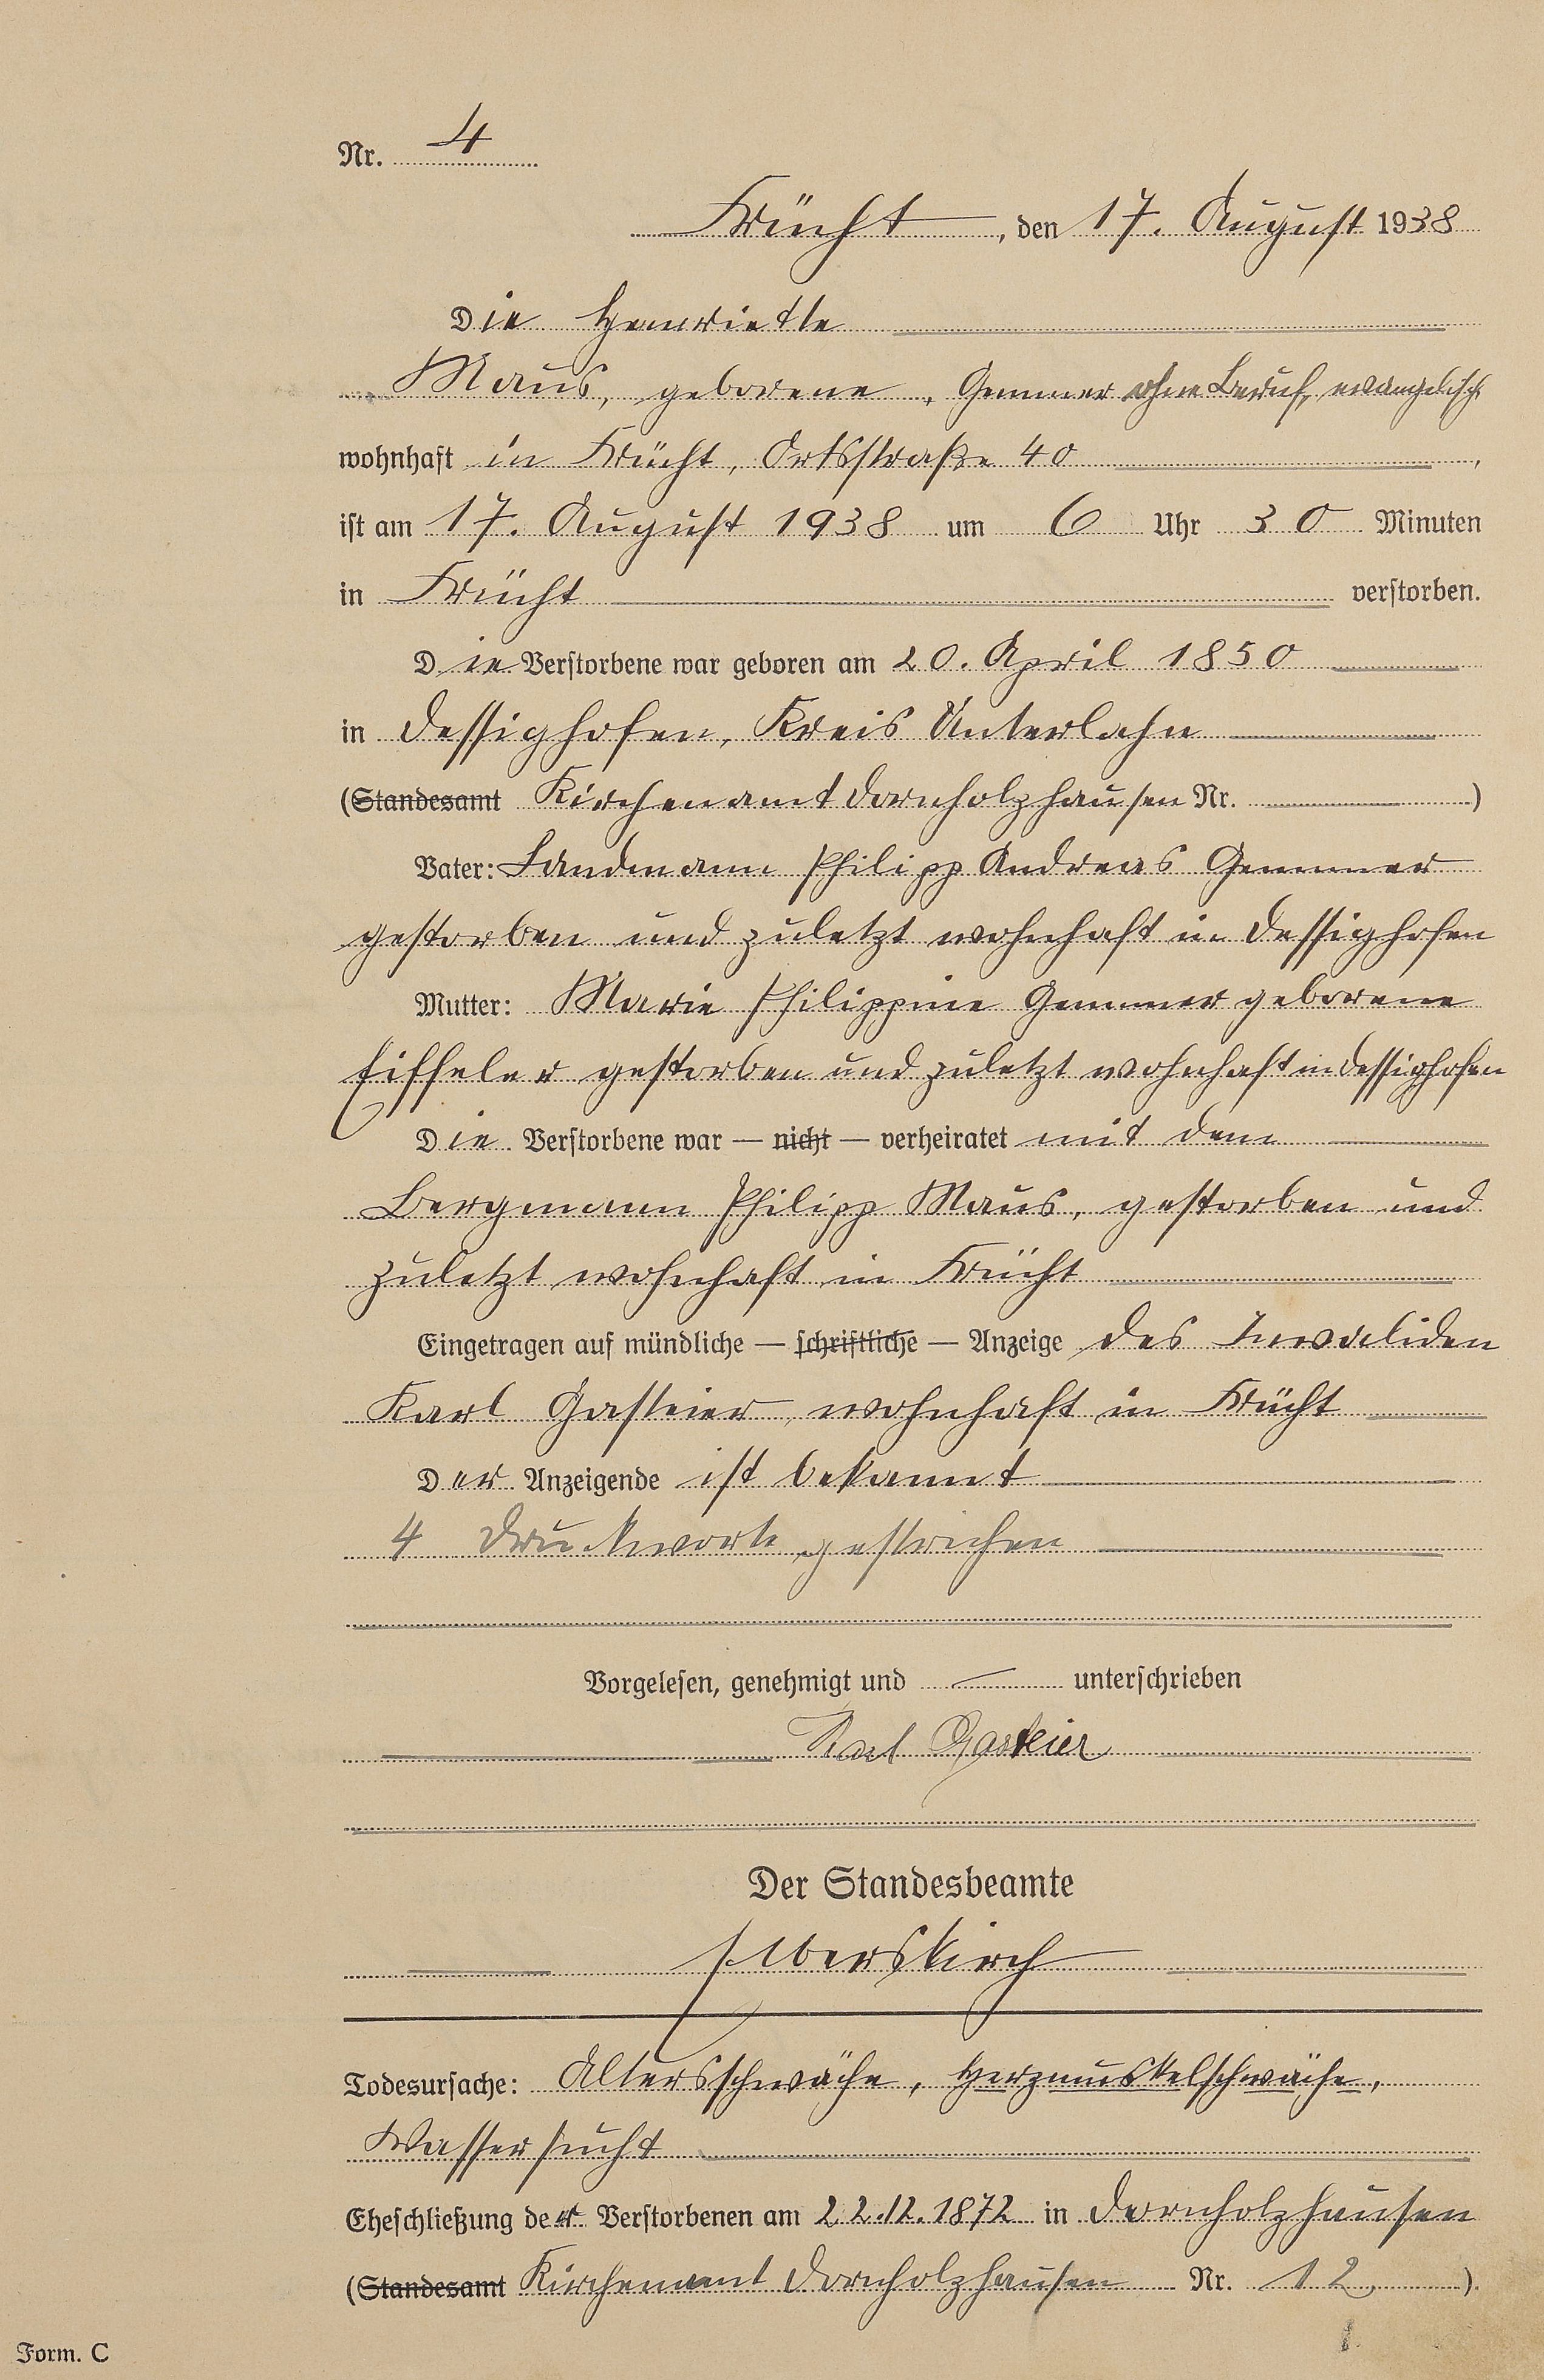 Nr. 4
Frücht, den 17. August 1938
Die Henriette
Maus, geborene Gemmer ohne Beruf, evangelisch
wohnhaft in Frücht, Ortsstraße 40,
ist am 17. August 1938 um 6 Uhr 30 Minuten
in Frücht verstorben.
Die Verstorbene war geboren am 20. April 1850
in Dessighofen, Kreis Unterlahn
(Standesamt Kirchenamt Dornholzhausen Nr. )
Vater: Landmann Philipp Andreas Gemmer
gestorben und zuletzt wohnhaft in Dessighofen
Mutter: Marie Philippine Gemmer geborene
Eiffeler gestorben und zuletzt wohnhaft in Dessighofen
Die Verstorbene war — nicht — verheiratet mit dem
Bergmann Philipp Maus, gestorben und
zuletzt wohnhaft in Frücht
Eingetragen auf mündliche — schriftliche — Anzeige des Invaliden
Karl Gasteier, wohnhaft in Frücht
Der Anzeigende ist bekannt
4 Druckworte gestrichen
Vorgelesen, genehmigt und — unterschrieben
Karl Gasteier
Der Standesbeamte
Todesursache: Altersschwäche, Herzmuskelschwäche,
Wassersucht
Eheschließung der Verstorbenen am 22.12.1872 in Dornholzhausen
(Standesamt Kirchenamt Dornholzhausen Nr. 12)
Form. C